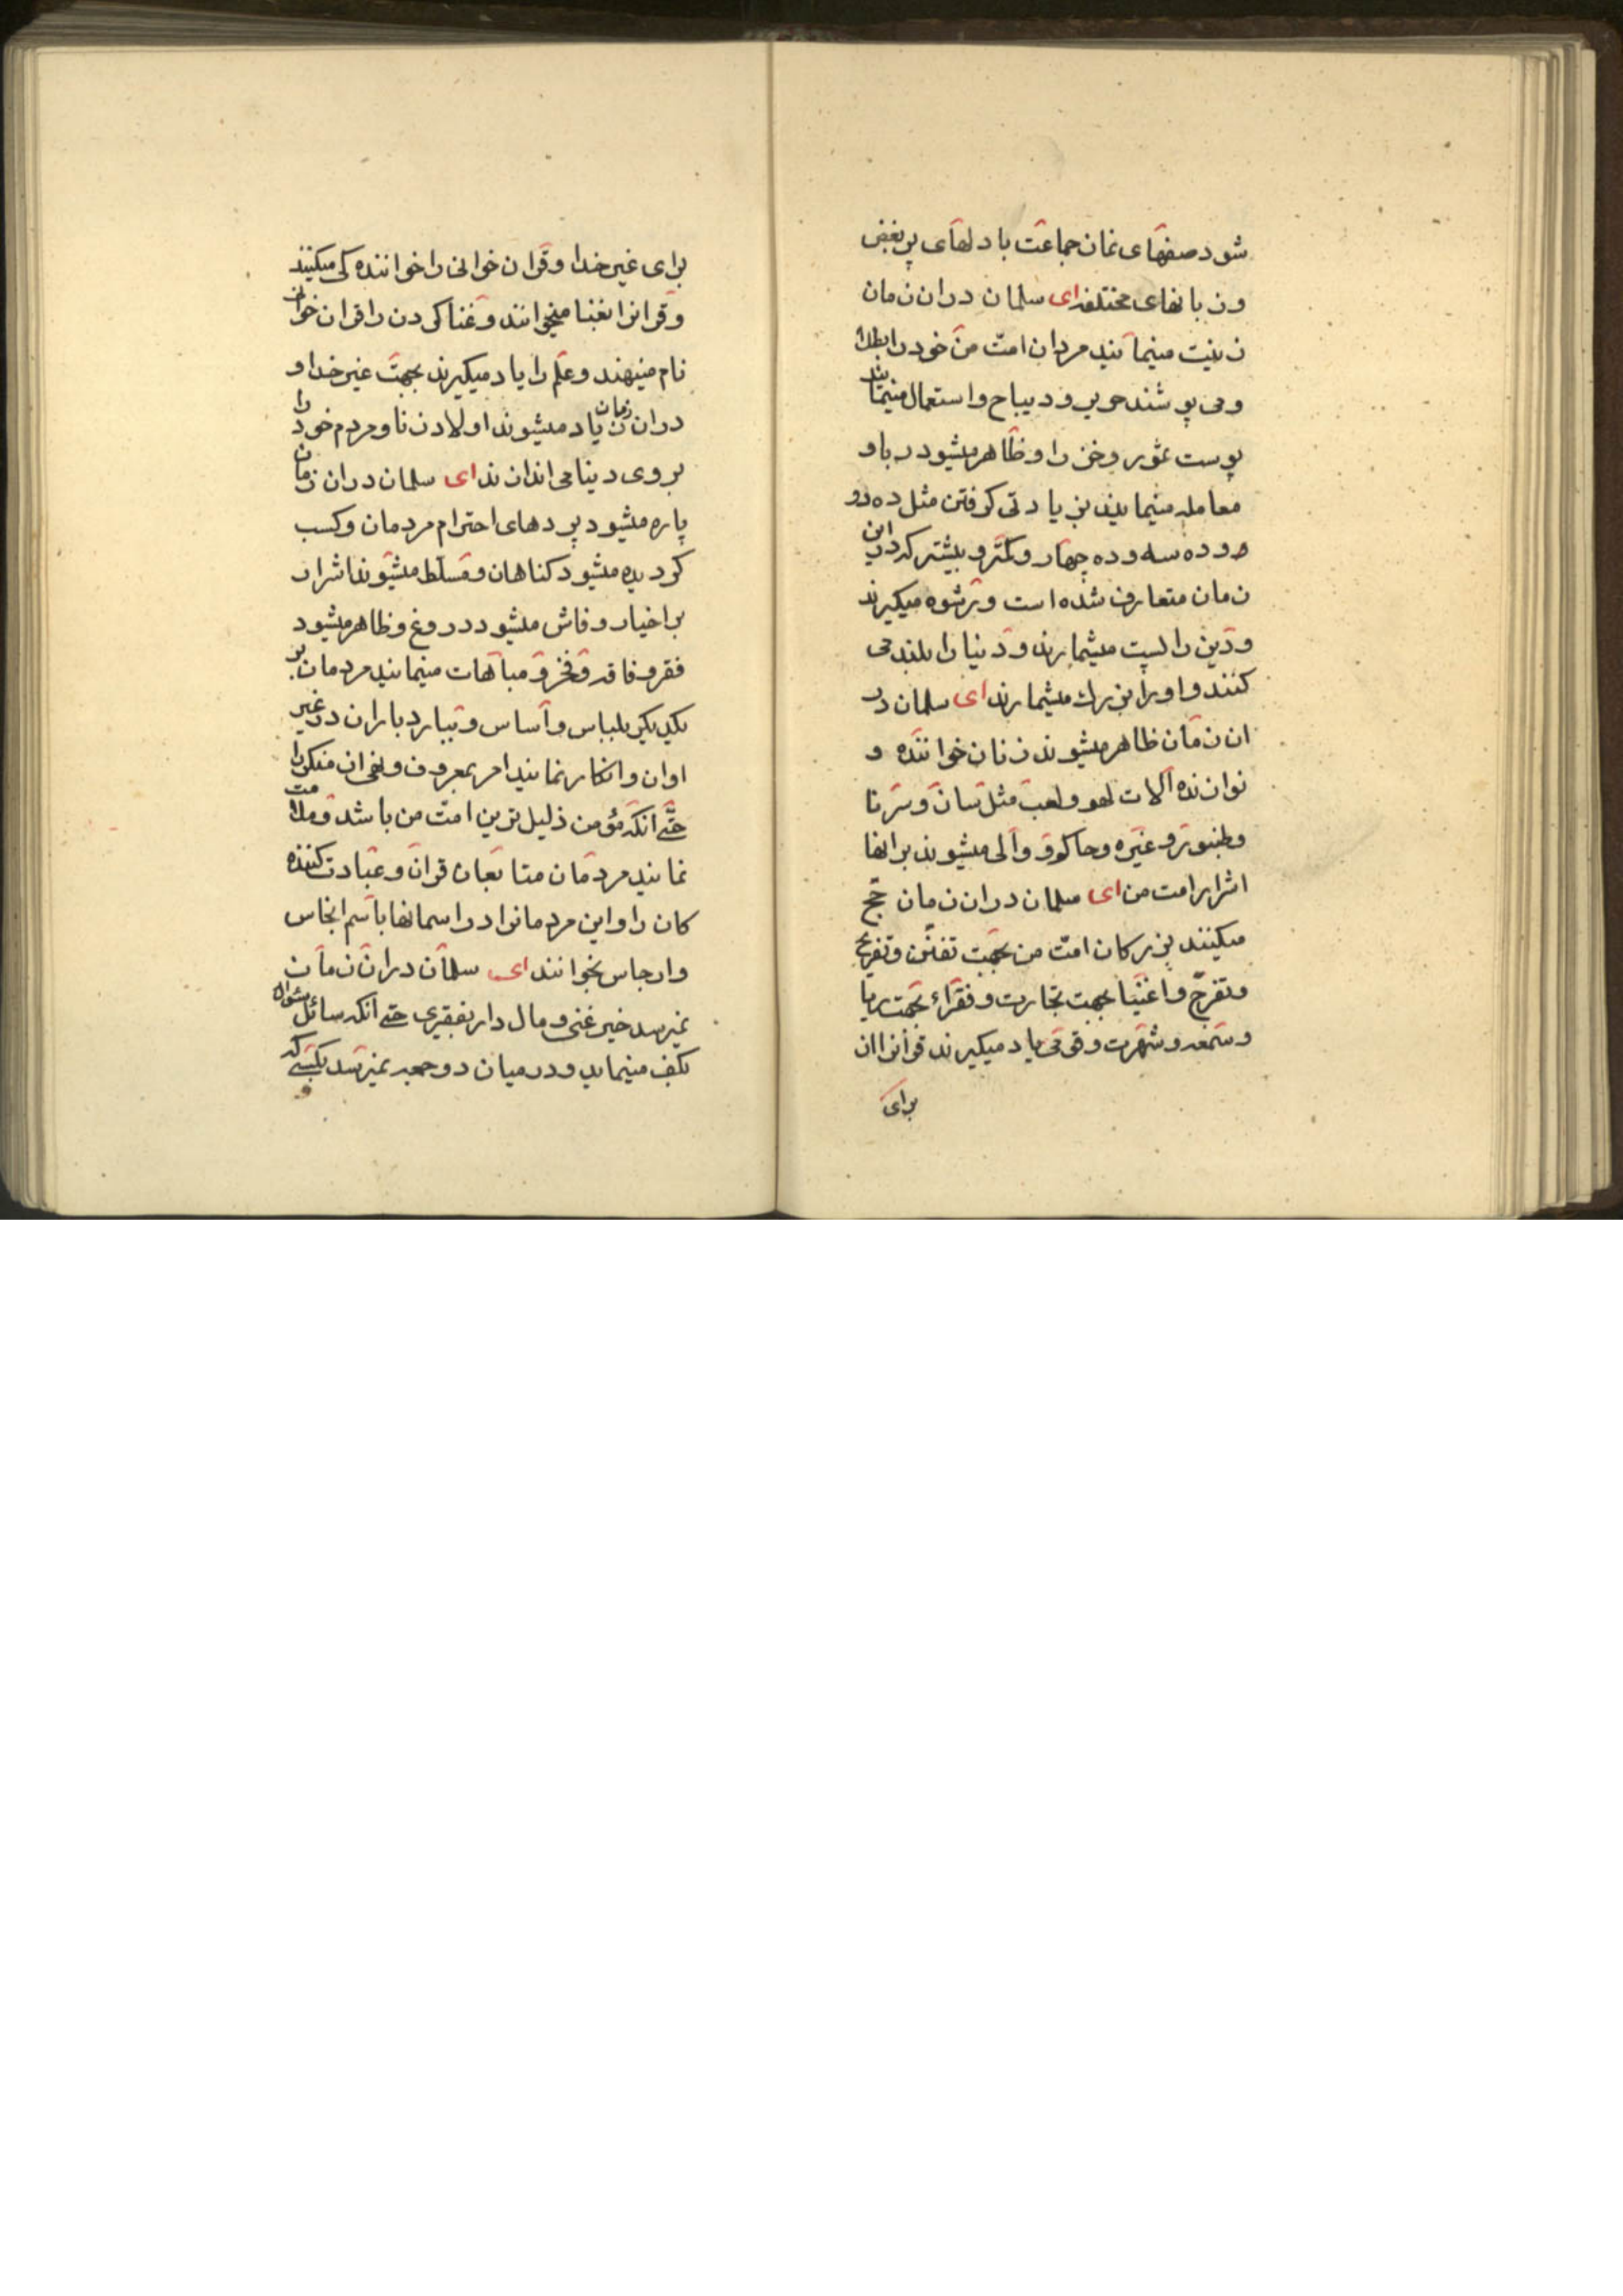 شود صفهای نماز جماعت با دلهای پر بغض
و زبانهای مختلفه ای سلمان در ان زمان
زینت مینمایند مردان امت من خود را بطلا
و می پوشند حریر و دیباج و استعمال مینمایند
پوست نمور و خز را و ظاهر میشود ربا و
معامله مینمایند بزیادتی گرفتن مثل ده دو
ده و ده سه و ده چهار و کمتر و بیشتر که در این
زمان متعارف شده است و رشوه میگیرند
و دین را پست میشمارند و دنیا را بلند می
کنند و او را بزرك میشمارند ای سلمان در
ان زمان ظاهر میشوند زنان خواننده و
نوازنده آلات لهو و لعب مثل ساز و سرنا
و طنبور و غیره و حاکم و والی میشوند بر انها
اشرار امت من ای سلمان در ان زمان حج
میکنند بزرکان امت من بجهت تفنّن و تفریح
و تفرّج و اغنیا بجهت تجارت و فقراء بجهت ریا
و سمعه و شهرت و قومی یاد میگیرند قرآنرا از
برای
برای غیر خدا و قران خوانی را خواننده کی میکنند
و قرانرا بغنا میخوانند و غنا کردن را قران خوانی
نام مینهند و علم را یاد میگیرند بجهت غیر خدا و
در ان زمان زیاد میشوند اولاد زنا و مردم خود را
بروی دنیا می اندازند ای سلمان در ان زمان
پاره میشود پردهای احترام مردمان و کسب
کردیده میشود کناهان و مسلّط میشوند اشرار
بر اخیار و فاش میشود دروغ و ظاهر میشود
فقر و فاقه و فخر و مباهات مینمایند مردمان بر
یکدیکر بلباس و اساس و ببارد باران در غیر
اوان و انکار نمایند امر بمعروف و نهی از منکر را
حتّی آنکه مؤمن ذلیل ترین امّت من باشد و ملامت
نمایند مردمان متابعان قرآن و عبادت کننده
کان را و این مردمانرا در اسمانها باسم انجاس
و ارجاس بخوانند ای سلمان در ان زمان
نمیرسد خیر غنی و مال دار بفقیری حتی انکه سائل سئوال
بکف مینماید و در میان دو جمعه نمیرسد بکسی که